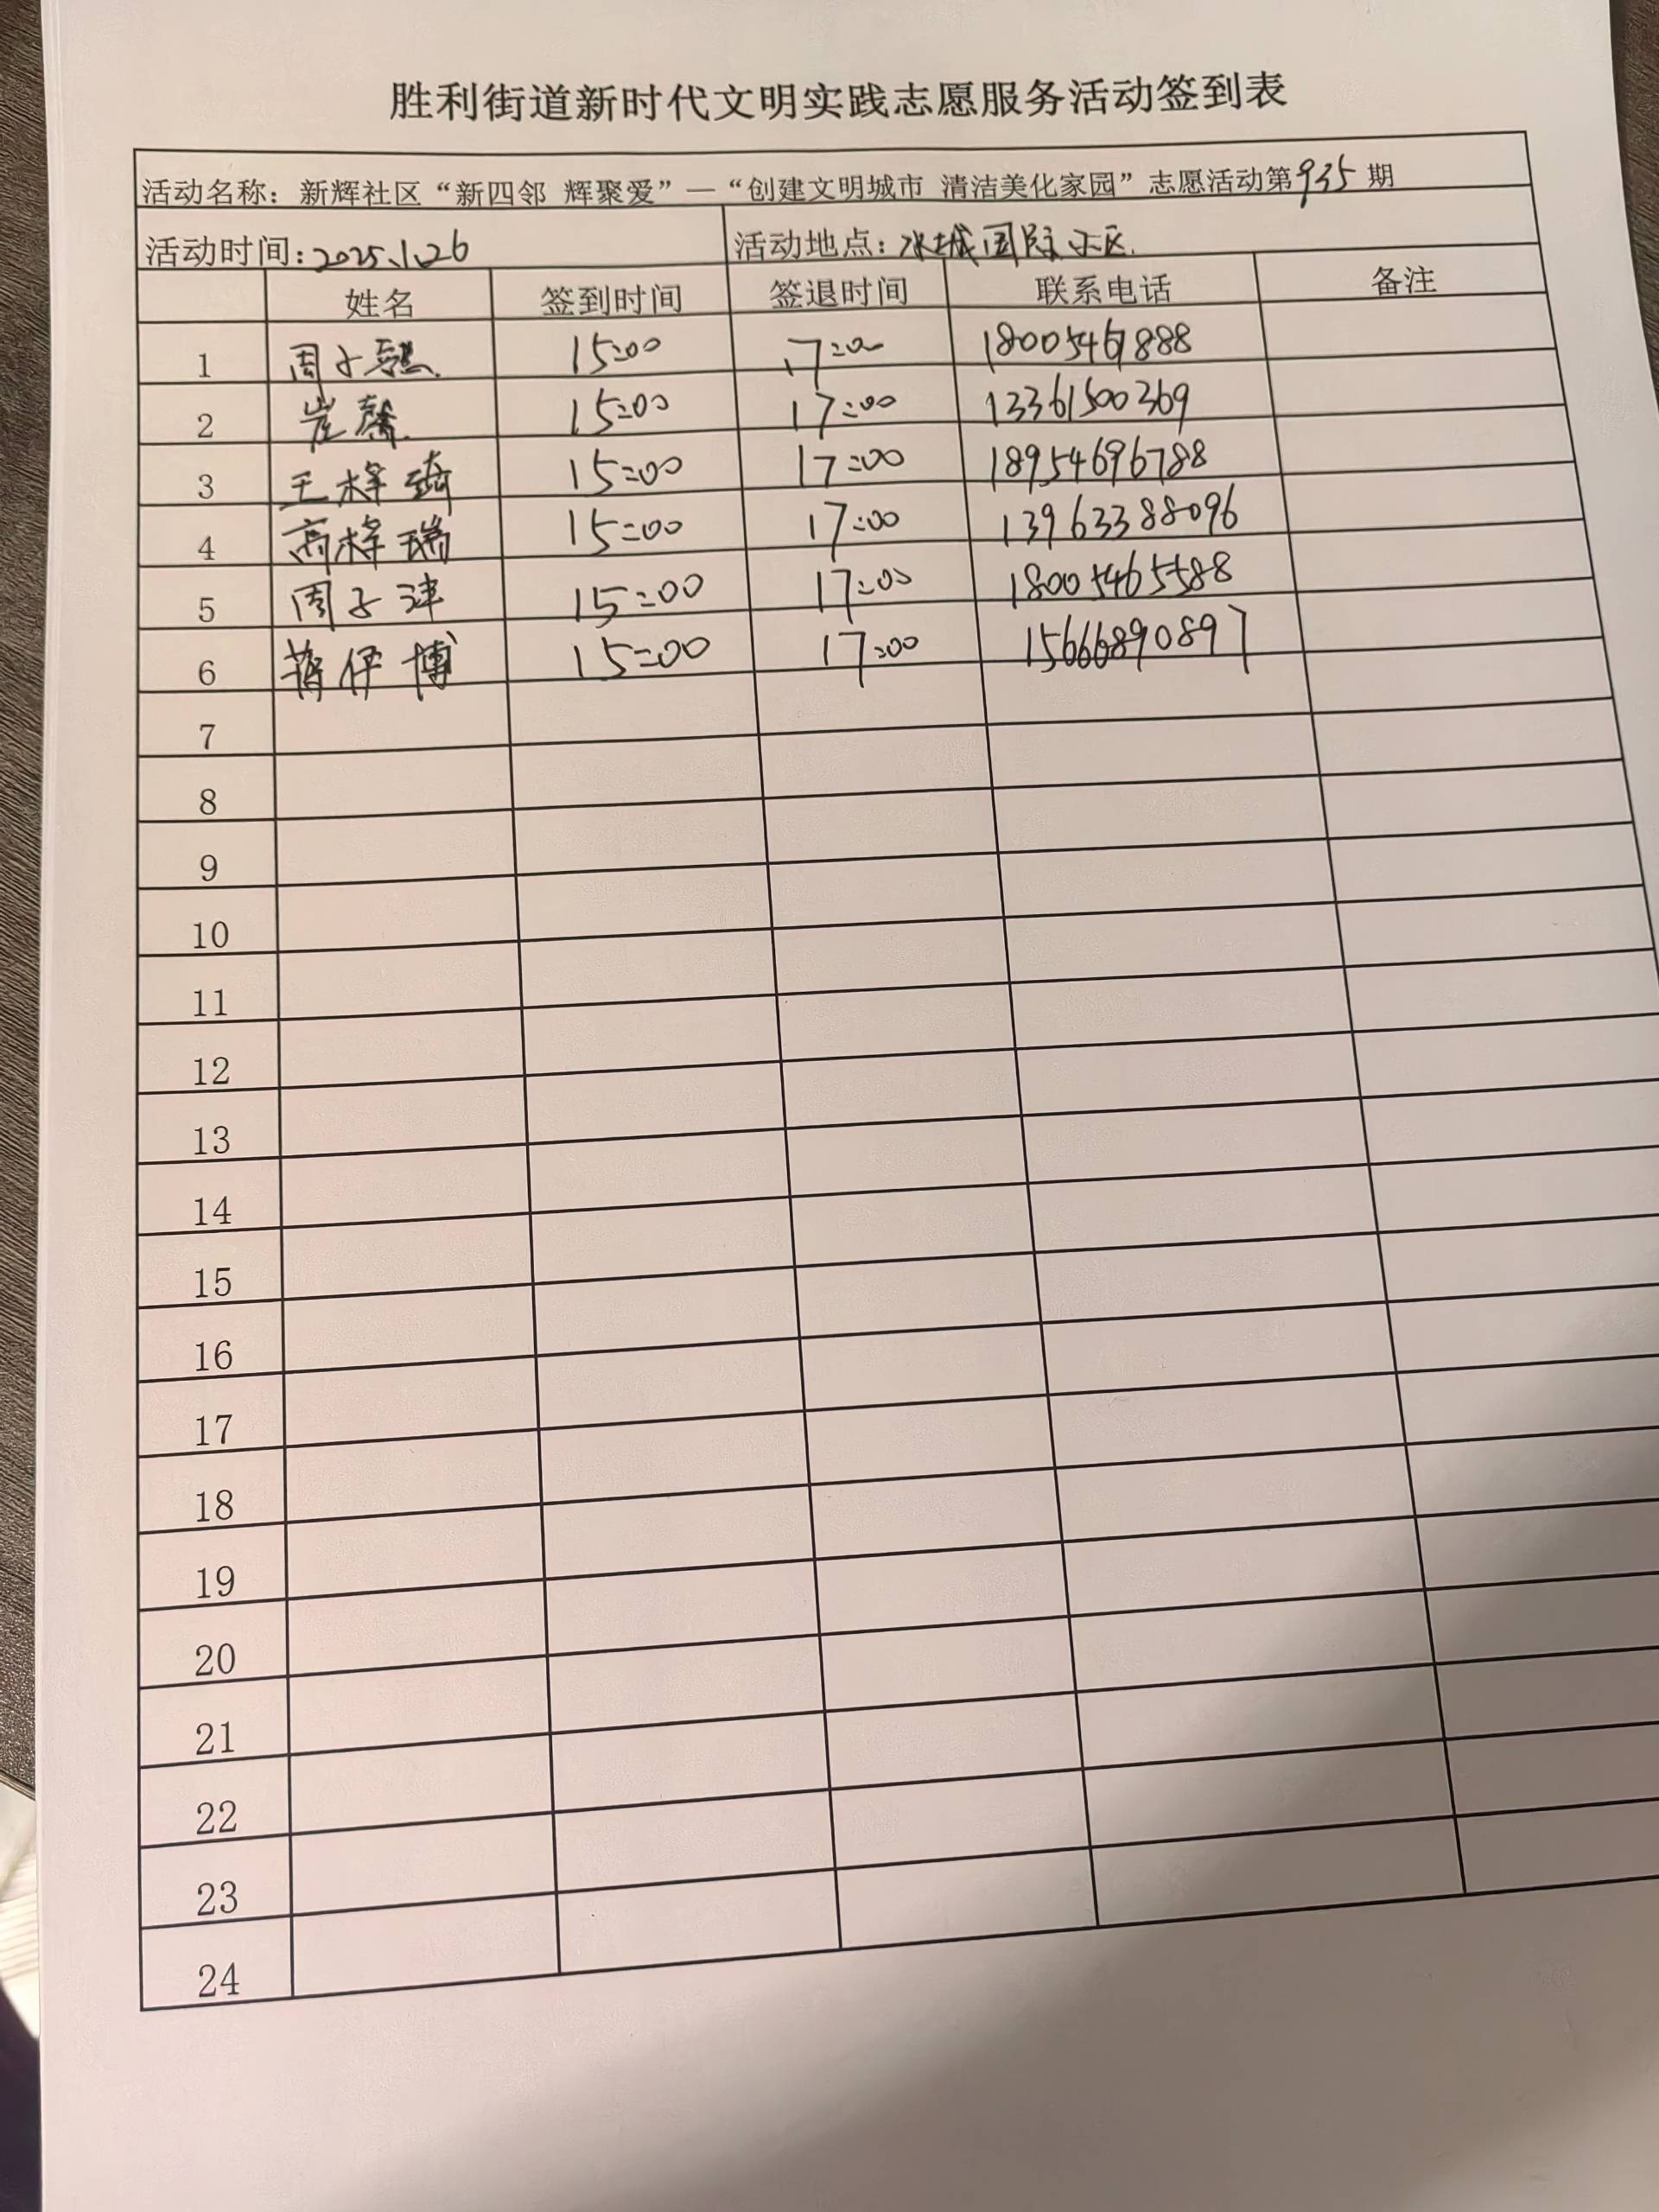 胜利街道新时代文明实践志愿服务活动签到表
活动名称：新辉社区“新四邻 辉聚爱”—“创建文明城市 清洁美化家园”志愿活动第935期
活动时间：2025.1.26 活动地点：水城国际小区
姓名 签到时间 签退时间 联系电话 备注
1 周子 15:00 17:00 1800546888
2 崔馨 15:00 17:00 13361500369
3 王梓琦 15:00 17:00 18954696788
4 高梓瑞 15:00 17:00 13963388096
5 周子沣 15:00 17:00 18005465588
6 蒋伊博 15:00 17:00 15666890897
7
8
9
10
11
12
13
14
15
16
17
18
19
20
21
22
23
24